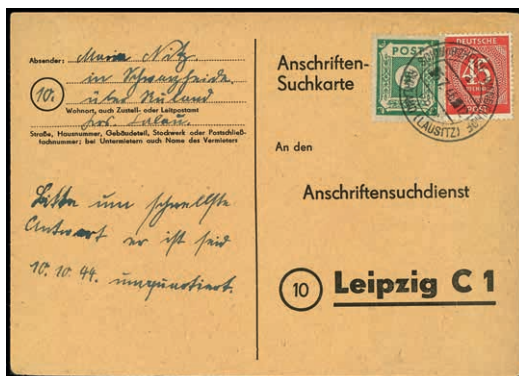 Absender: Maria Nitz
in Schwarzheide
über Ruland
Krs. Calau.
10.
Wohnort, auch Zustell- oder Leitpostamt
Straße, Hausnummer, Gebäudeteil, Stockwerk oder Postschließ-
fachnummer; bei Untermietern auch Name des Vermieters
Bitte um schnellste
Antwort er ist seid
10.10.44. umquartiert.
Anschriften-
Suchkarte
POST
DEUTSCHE
45
POST
(LAUSITZ)
An den
Anschriftensuchdienst
10 Leipzig C 1